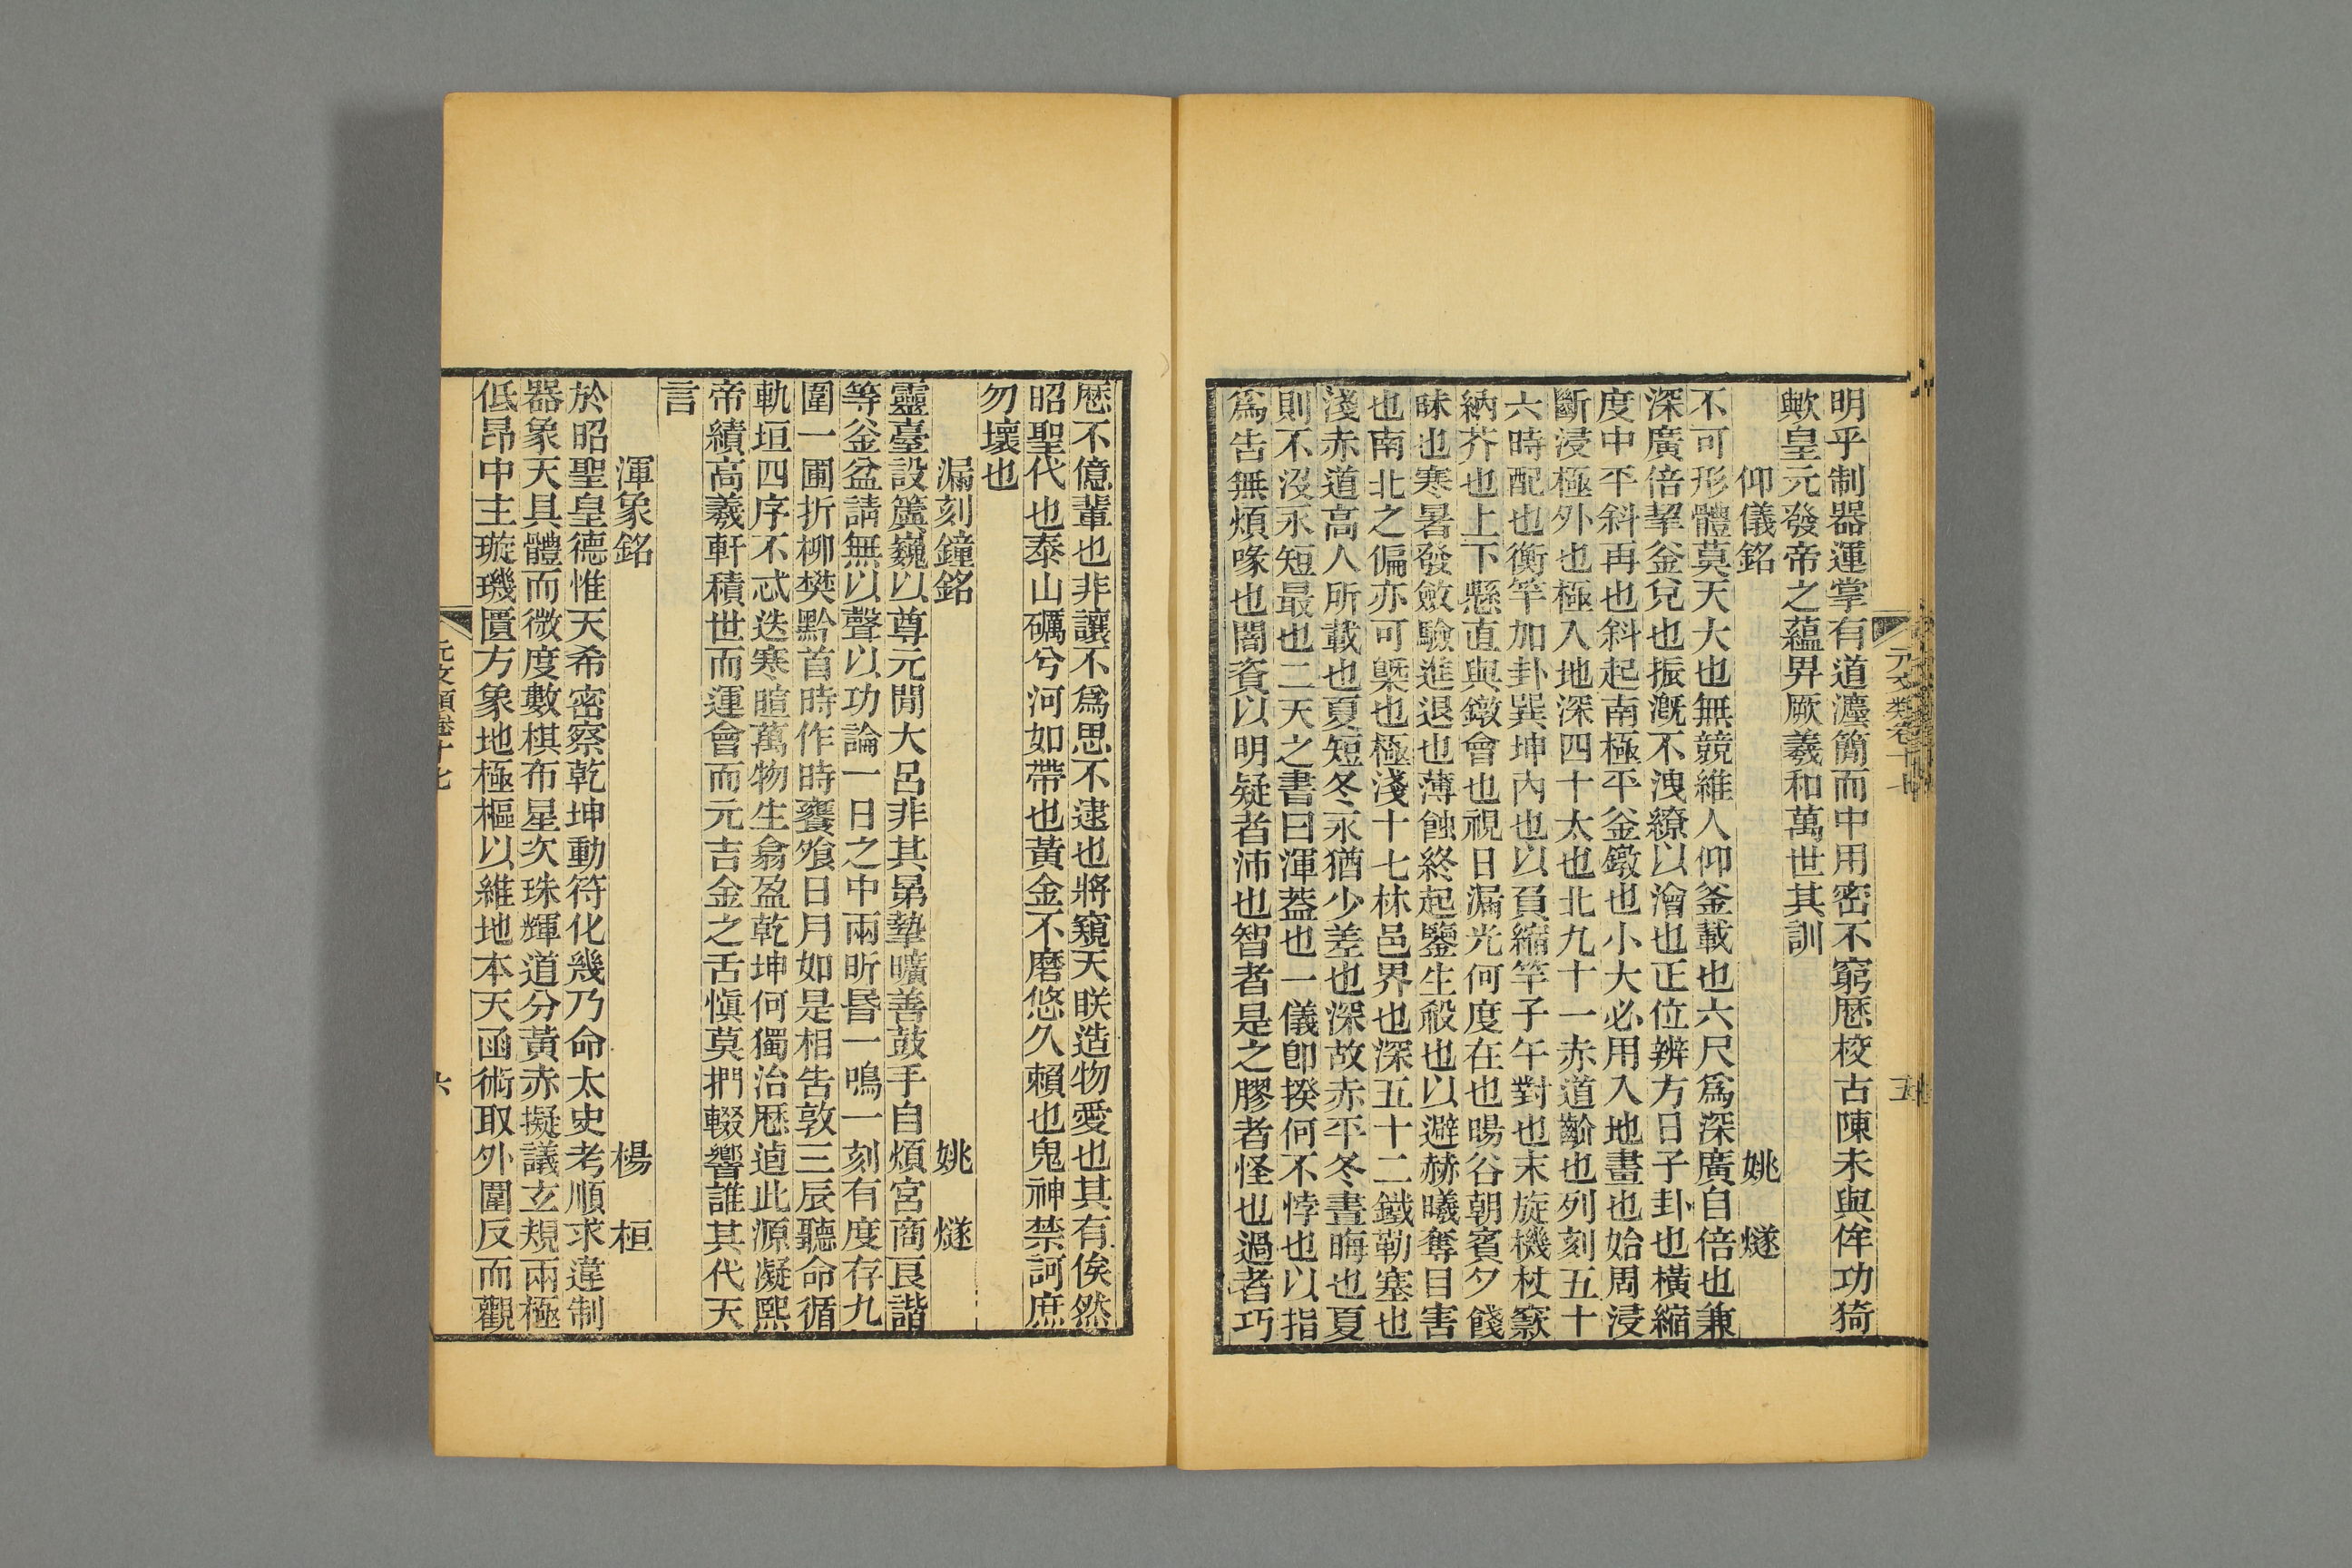 元文類卷十七
五
明乎制器運掌有道灋簡而中用密不窮厯校古陳未與侔功猗
歟皇元發帝之蘊畀厥羲和萬世其訓
仰儀銘　姚　燧
不可形體莫天大也無競維人仰釜載也六尺爲深廣自倍也兼
深廣倍挈釜兌也振溉不洩繚以澮也正位辨方日子卦也橫縮
度中平斜再也斜起南極平釜鐓也小大必用入地畫也始周浸
斷浸極外也極入地深四十太也北九十一赤道齘也列刻五十
六時配也衡竿加卦巽坤內也以負縮竿子午對也末旋機杖窾
納芥也上下懸直與鐓會也視日漏光何度在也暘谷朝賓夕餞
昧也寒暑發斂驗進退也薄蝕終起鑒生殺也以避赫曦奪目害
也南北之偏亦可槩也極淺十七林邑界也深五十二鐵勒塞也
淺赤道高人所載也夏短冬永猶少差也深故赤平冬晝晦也夏
則不沒永短最也二天之書曰渾葢也一儀卽揆何不悖也以指
爲告無煩喙也闇資以明疑者沛也智者是之膠者怪也過者巧
厯不億輩也非讓不爲思不逮也將窺天朕造物愛也其有俟然
昭聖代也泰山礪兮河如帶也黃金不磨悠久賴也鬼神禁訶庶
勿壞也
漏刻鐘銘　姚　燧
靈臺設簴巍以尊元閒大呂非其㬅摯曠善鼓手自煩宮商艮諧
等釡盆請無以聲以功論一日之中兩昕昬一鳴一刻有度存九
圍一圃折柳樊黔首時作時饔飧日月如是相告敦三辰聽命循
軌垣四序不忒迭寒暄萬物生翕盈乾坤何獨治厯逌此源凝熙
帝績高羲軒積世而運會而元吉金之舌愼莫捫輟響誰其代天
言
渾象銘　楊　桓
於昭聖皇德惟天希密察乾坤動符化幾乃命太史考順求違制
器象天具體而微度數棋布星次珠輝道分黃赤擬議玄規兩極
低昂中主璇璣匱方象地極樞以維地本天函術取外圍反而觀
元文類卷十七
六